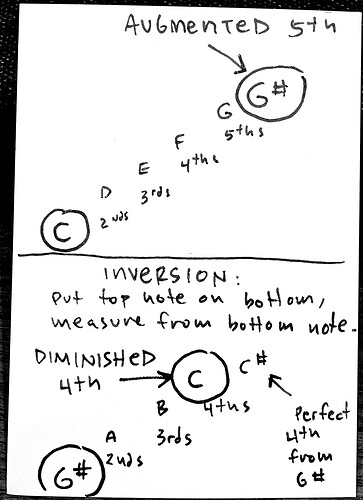 AUGMENTED 5th
G#
G
5ths
F
4ths
E
3rds
D
2nds
C
INVERSION:
put top note on bottom,
measure from bottom note.
DIMINISHED
4th
C
C#
4ths
B
3rds
A
2nds
G#
Perfect
4th
from
G#